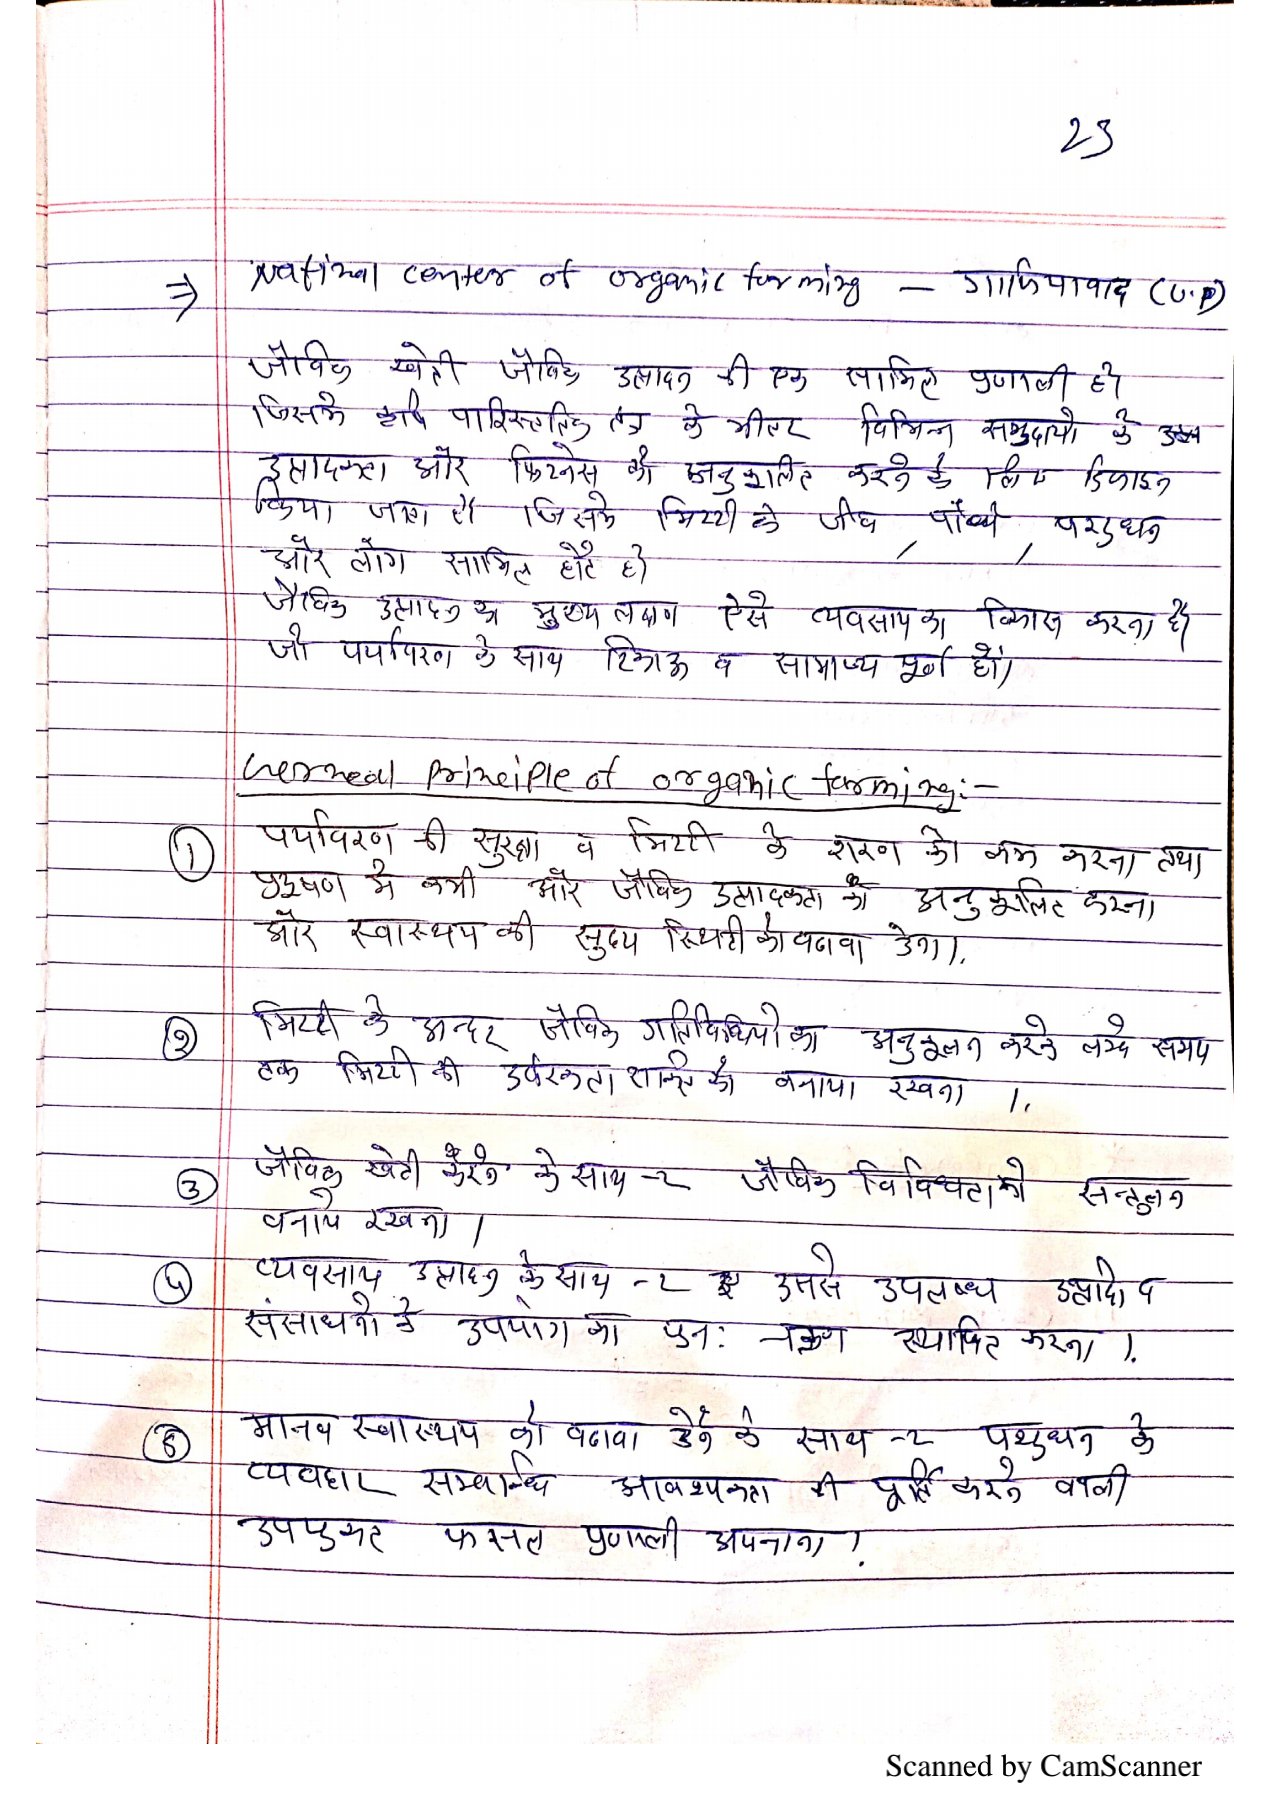 23
⇒ National center of organic farming — गाजियाबाद (U.P)
जैविक खेती जैविक उत्पादन की एक सामिल प्रणाली है।
जिसके कृषि पारिस्तिक तंत्र के भीतर विभिन्न समुदायो के
उत्पादकता और फिटनेस को अनुकूलित करने के लिए डिजाइन
किया जाता है। जिसके मिट्टी के जीव, पौधे, पशुधन
और लोग सामिल होते है।
जैविक उत्पादन का मुख्य लक्षण ऐसे व्यवसाय का विकास करना है।
जो पर्यावरण के साथ टिकाऊ व सामाज्य पूर्ण हो।
Gerneal principle of organic farming:-
① पर्यावरण की सुरक्षा व मिट्टी के क्षरण को कम करना तथा
प्रदूषण मे कमी और जैविक उत्पादकता को अनुकूलित करना
और स्वास्थय की सुदय स्थिती को बढावा देना।.
② मिट्टी के अन्दर जैविक गतिविधियो का अनुकूलन करके लम्बे समय
तक मिट्टी की उर्वरकता शक्ति को बनाया रखना ।.
③ जैविक खेती करने के साथ -2 जैविक विविधता को सन्तुलन
बनाये रखना ।
④ व्यवसाय उत्पादन के साथ -2 उनसे उपलब्ध उत्पादो व
संसाधनो के उपयोग का पुनः चक्रण स्थापित करना ।.
⑤ मानव स्वास्थय को बढावा देने के साथ -2 पशुधन के
व्यवहार सम्बन्धि आवश्यकता की पूर्ति करने वाली
उपयुक्त फसल प्रणाली अपनाना ।.
Scanned by CamScanner